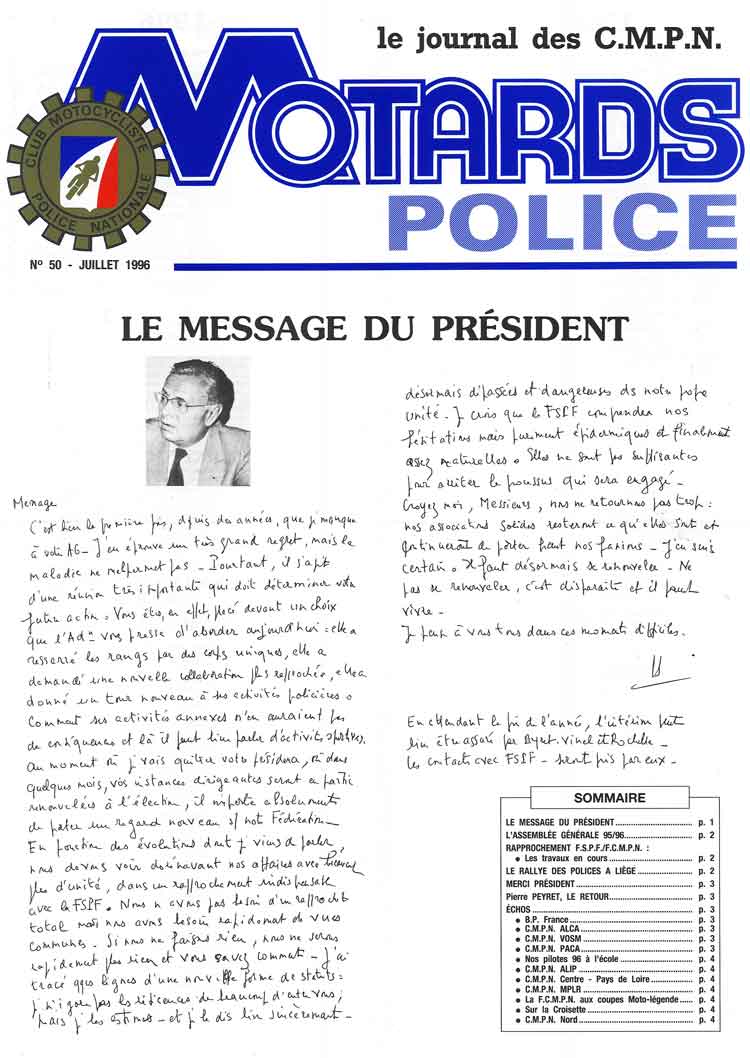 le journal des C.M.P.N.
MOTARDS
POLICE
CLUB MOTOCYCLISTE
POLICE NATIONALE
N° 50 - JUILLET 1996
LE MESSAGE DU PRÉSIDENT
Message
C'est bien la première fois, depuis des années, que je manque
à votre AG - J'en éprouve un très grand regret, mais la
maladie ne me le permet pas - Pourtant, il s'agit
d'une réunion très importante qui doit déterminer votre
future action. Vous êtes, en effet, placé devant un choix
que l'Ad° vous presse d'aborder aujourd'hui : elle a
resserré les rangs par des corps uniques, elle a
demandé une nouvelle collaboration plus rapprochée, elle a
donné un tour nouveau à ses activités policières.
Comment ses activités annexes n'en auraient pas
de conséquences et là il faut bien parler d'activités sportives.
Au moment où je vais quitter votre présidence, où dans
quelques mois, vos instances dirigeantes seront en partie
renouvelées à l'élection, il importe absolument
de porter un regard nouveau s/ notre Fédération.
En fonction des évolutions dont je viens de parler,
nous devons voir dorénavant nos affaires avec
plus d'unité, dans un rapprochement indispensable
avec la FSPF. Nous n'avons pas besoin d'un rapproch
total mais nous avons besoin rapidement de vues
communes. Si nous ne faisons rien, nous ne serons
rapidement plus rien et vous savez comment - J'ai
tracé qques lignes d'une nouvelle forme de statuts :
je n'ignore pas les réticences de beaucoup d'entre vous,
mais je les estimes - et je le dis bien sincèrement -
désormais dépassées et dangereuses ds notre propre
unité - Je crois que la FSPF comprendra nos
hésitations mais purement épidermiques et finalement
assez naturelles. Elles ne sont pas suffisantes
pour arrêter le processus qui sera engagé -
Croyez moi, Messieurs, nous ne retournons pas trop :
nos associations solides resteront ce qu'elles sont et
continueront de porter haut nos fanions - J'en suis
certain. Il faut désormais se renouveler - Ne
pas se renouveler, c'est disparaître et il faut
vivre -
Je pense à vous tous dans ces moments difficiles.
En attendant la fin de l'année, l'intérim peut
être assuré par Vinel et Rochelle -
Les contacts avec FSPF - seront pris par eux -
SOMMAIRE
LE MESSAGE DU PRÉSIDENT .......... p. 1
L'ASSEMBLÉE GÉNÉRALE 95/96 .......... p. 2
RAPPROCHEMENT F.S.P.F./F.C.M.P.N. :
● Les travaux en cours .......... p. 2
LE RALLYE DES POLICES A LIÈGE .......... p. 2
MERCI PRÉSIDENT .......... p. 3
Pierre PEYRET, LE RETOUR .......... p. 3
ÉCHOS .......... p. 3
● B.P. France .......... p. 3
● C.M.P.N. ALCA .......... p. 3
● C.M.P.N. VOSM .......... p. 3
● C.M.P.N. PACA .......... p. 3
● Nos pilotes 96 à l'école .......... p. 4
● C.M.P.N. ALIP .......... p. 4
● C.M.P.N. Centre - Pays de Loire .......... p. 4
● C.M.P.N. MPLR .......... p. 4
● La F.C.M.P.N. aux coupes Moto-légende .......... p. 4
● Sur la Croisette .......... p. 4
● C.M.P.N. Nord .......... p. 4